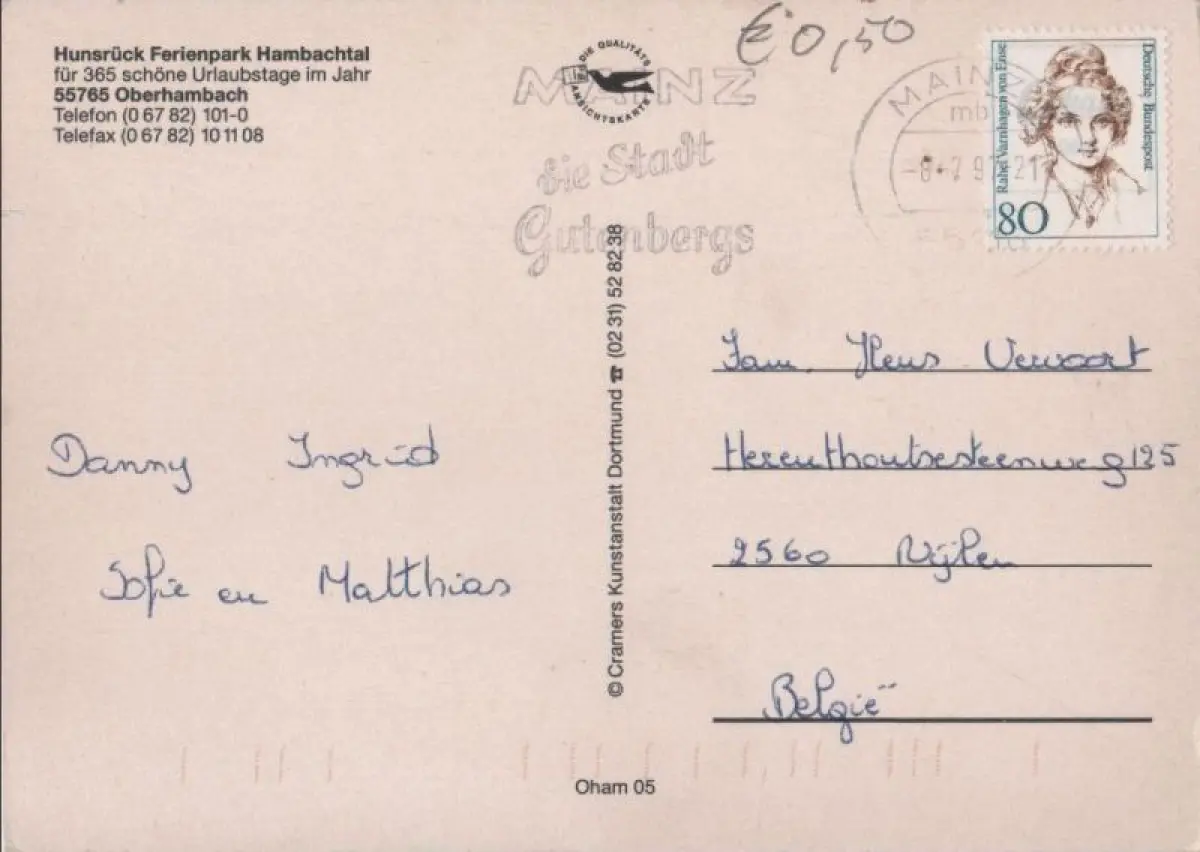 Hunsrück Ferienpark Hambachtal
für 365 schöne Urlaubstage im Jahr
55765 Oberhambach
Telefon (0 67 82) 101-0
Telefax (0 67 82) 10 11 08
DIE QUALITÄTS
ANSICHTSKARTE
MAINZ
die Stadt
Gutenbergs
€ 0,50
MAINZ
mb
Rahel Varnhagen von Ense
Deutsche Bundespost
80
Fam. Heus Vervoort
Herenthoutsesteenweg 125
2560 Nijlen
België
Danny Ingrid
Sofie en Matthias
© Cramers Kunstanstalt Dortmund ☎ (02 31) 52 82 38
Oham 05